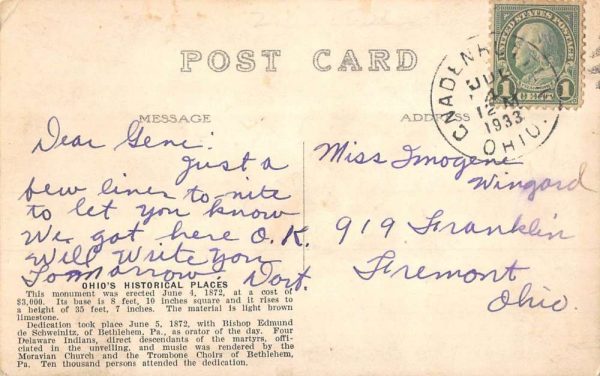 POST CARD
UNITED STATES POSTAGE
1 CENT 1
GNADENH
JUL
12 M
1933
OHIO.
MESSAGE
ADDRESS
Dear Gene:
Just a
few lines to-nite
to let you know
We got here O.K.
Will Write You
Tomorrow. Dort.
Miss Imogene
Wingard
919 Franklin
Fremont
Ohio.
OHIO'S HISTORICAL PLACES
This monument was erected June 4, 1872, at a cost of
$3,000. Its base is 8 feet, 10 inches square and it rises to
a height of 35 feet, 7 inches. The material is light brown
limestone.
Dedication took place June 5, 1872, with Bishop Edmund
de Schweinitz, of Bethlehem, Pa., as orator of the day. Four
Delaware Indians, direct descendants of the martyrs, offi-
ciated in the unveiling, and music was rendered by the
Moravian Church and the Trombone Choirs of Bethlehem,
Pa. Ten thousand persons attended the dedication.